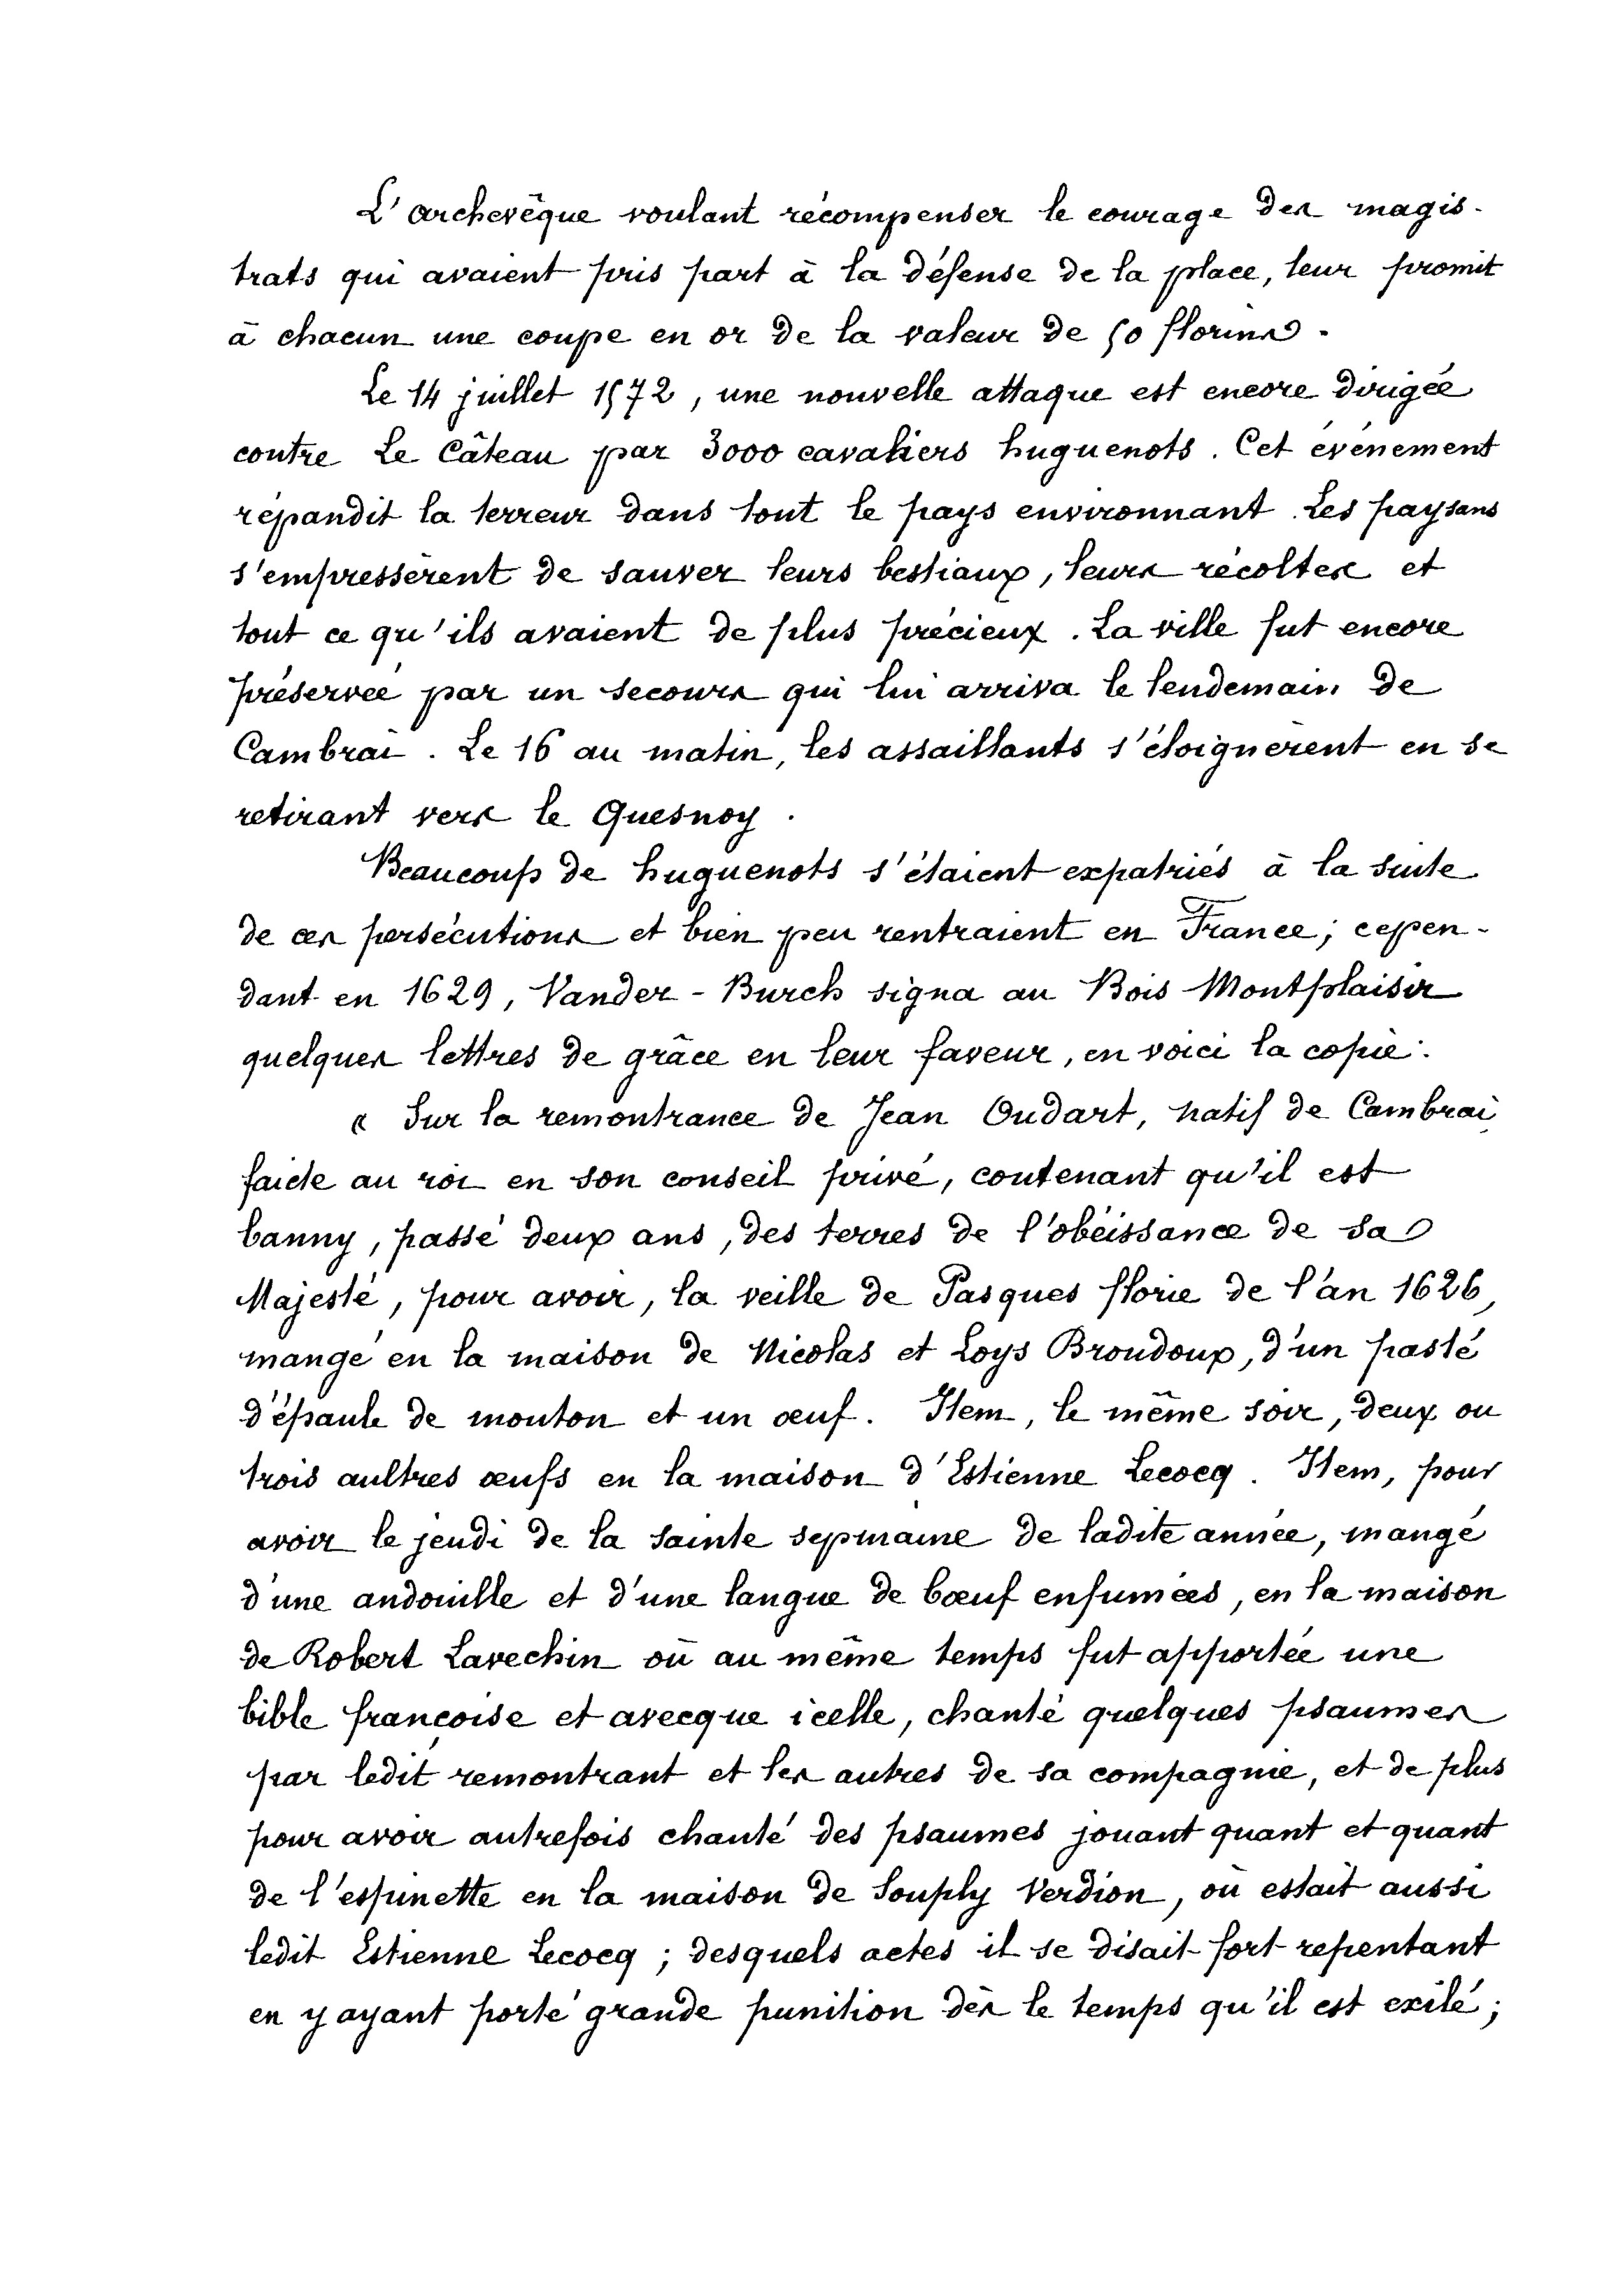 L'archevêque voulant récompenser le courage des magis-
trats qui avaient pris part à la défense de la place, leur promit
à chacun une coupe en or de la valeur de 50 florins.
Le 14 juillet 1572, une nouvelle attaque est encore dirigée
contre Le Câteau par 3000 cavaliers huguenots. Cet événement
répandit la terreur dans tout le pays environnant. Les paysans
s'empressèrent de sauver leurs bestiaux, leurs récoltes et
tout ce qu'ils avaient de plus précieux. La ville fut encore
préservée par un secours qui lui arriva le lendemain de
Cambrai. Le 16 au matin, les assaillants s'éloignèrent en se
retirant vers le Quesnoy.
Beaucoup de huguenots s'étaient expatriés à la suite
de ces persécutions et bien peu rentraient en France; cepen-
dant en 1629, Vander-Burch signa au Bois Montplaisir
quelques lettres de grâce en leur faveur, en voici la copie:
« Sur la remontrance de Jean Oudart, natif de Cambrai,
faicte au roi en son conseil privé, contenant qu'il est
banny, passé deux ans, des terres de l'obéissance de sa
Majesté, pour avoir, la veille de Pasques florie de l'an 1626,
mangé en la maison de Nicolas et Loys Broudoux, d'un pasté
d'épaule de mouton et un œuf. Item, le même soir, deux ou
trois aultres œufs en la maison d'Estienne Lecocq. Item, pour
avoir le jeudi de la sainte sepmaine de ladite année, mangé
d'une andouille et d'une langue de bœuf enfumées, en la maison
de Robert Lavechin où au même temps fut apportée une
bible françoise et avecque icelle, chanté quelques psaumes
par ledit remontrant et les autres de sa compagnie, et de plus
pour avoir autrefois chanté des psaumes jouant quant et quant
de l'espinette en la maison de Souply Verdion, où estait aussi
ledit Estienne Lecocq; desquels actes il se disait fort repentant
en y ayant porté grande punition dès le temps qu'il est exilé;